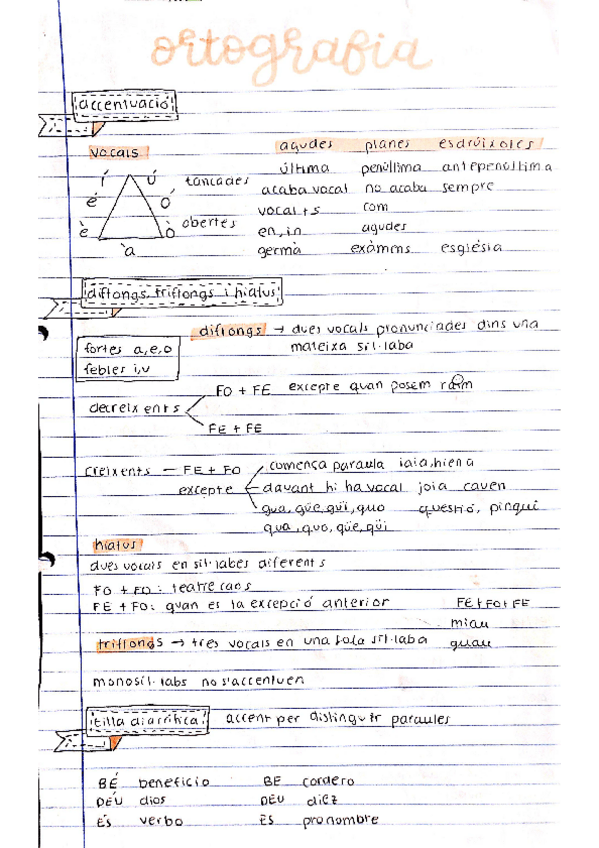 ortografia
accentuació
vocals
agudes planes esdrúixoles
í ú tancades
última penúltima antepenúltima
é ó
acaba vocal no acaba sempre
vocal+s com
è ò obertes
en, in agudes
à
germà exàmens església
diftongs, triftongs i hiatus
diftongs → dues vocals pronunciades dins una
mateixa síl·laba
fortes a,e,o
febles i,u
decreixents
FO + FE excepte quan posem raïm
FE + FE
creixents — FE + FO
excepte
comença paraula iaia, hiena
davant hi ha vocal joia caven
gua, güe, güi, guo qüestió, pingüí
qua, quo, qüe, qüi
hiatus
dues vocals en síl·labes diferents
FO + FO: teatre caos
FE + FO: quan es la excepció anterior
FE+FO+FE
miau
guau
triftongs → tres vocals en una sola síl·laba
monosíl·labs no s'accentuen
titlla diacrítica accent per distinguir paraules
BÉ beneficio BE cordero
DÉU dios DEU diez
ÉS verbo ES pronombre